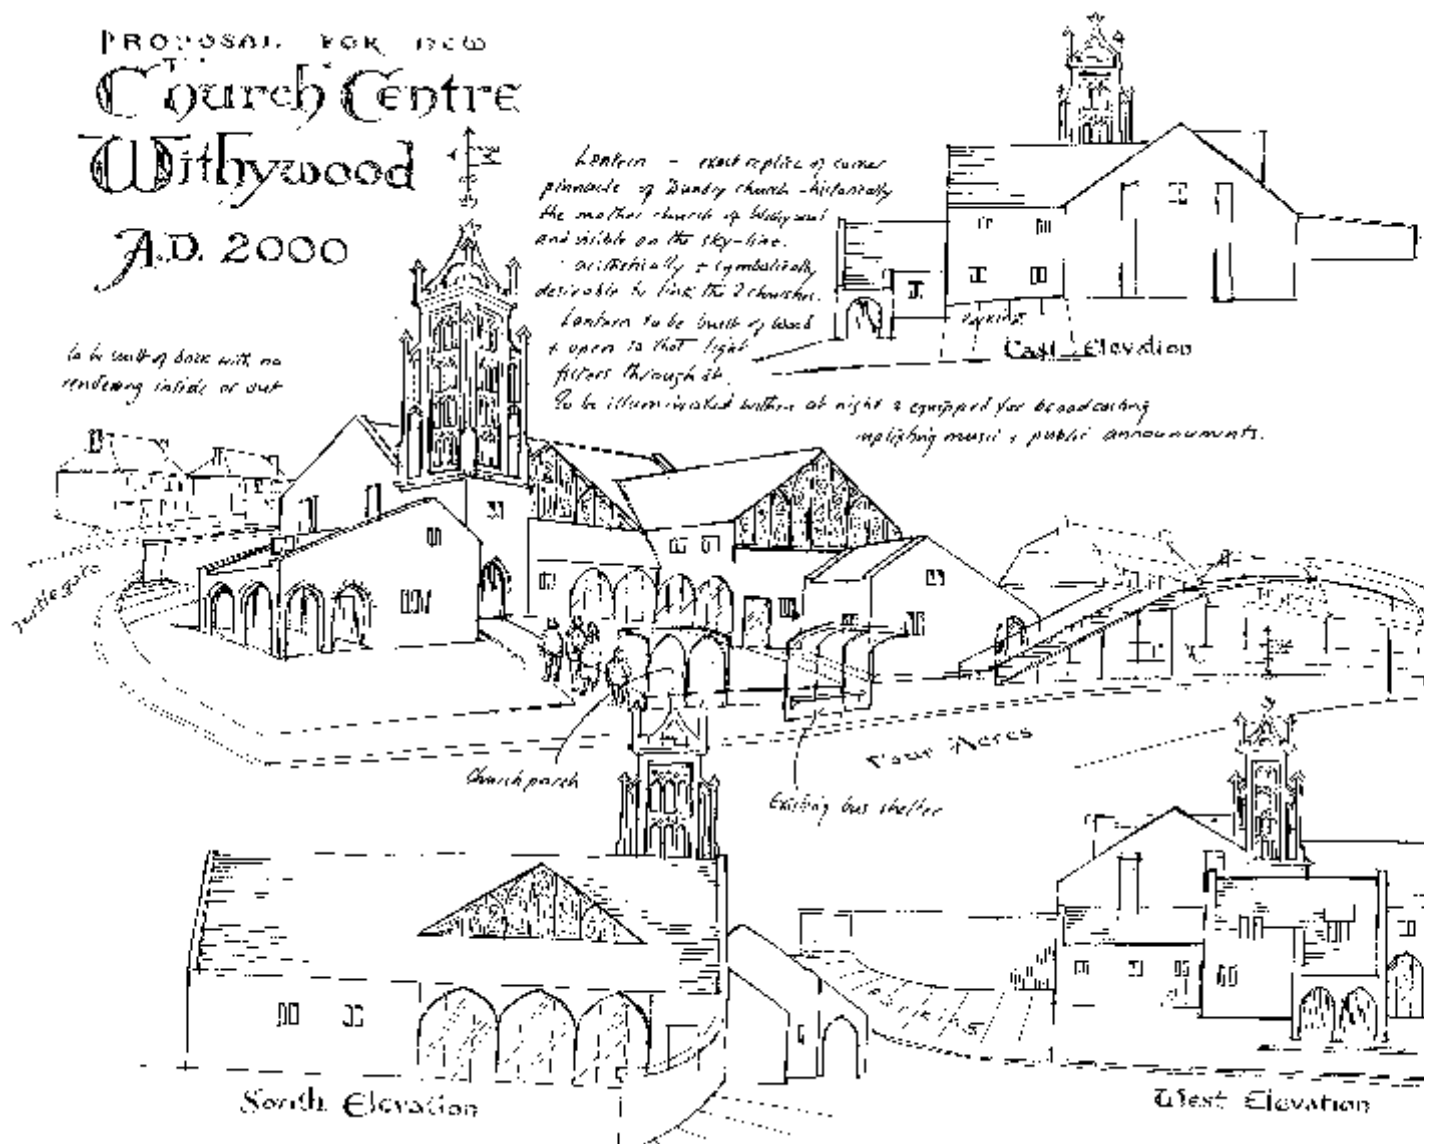 PROPOSAL FOR NEW
Church Centre
Withywood
A.D. 2000
Lantern - exact replica of corner
pinnacle of Dundry church - historically
the mother church of Withywood
and visible on the sky-line.
artistically & symbolically
desirable to link the 2 churches.
Lantern to be built of wood
& open so that light
filters through it.
To be illuminated within at night & equipped for broadcasting
uplifting music & public announcements.
to be built of brick with no
rendering inside or out
PARKING
East Elevation
Four Acres
Church porch
Existing bus shelter
PARKING
South Elevation
West Elevation